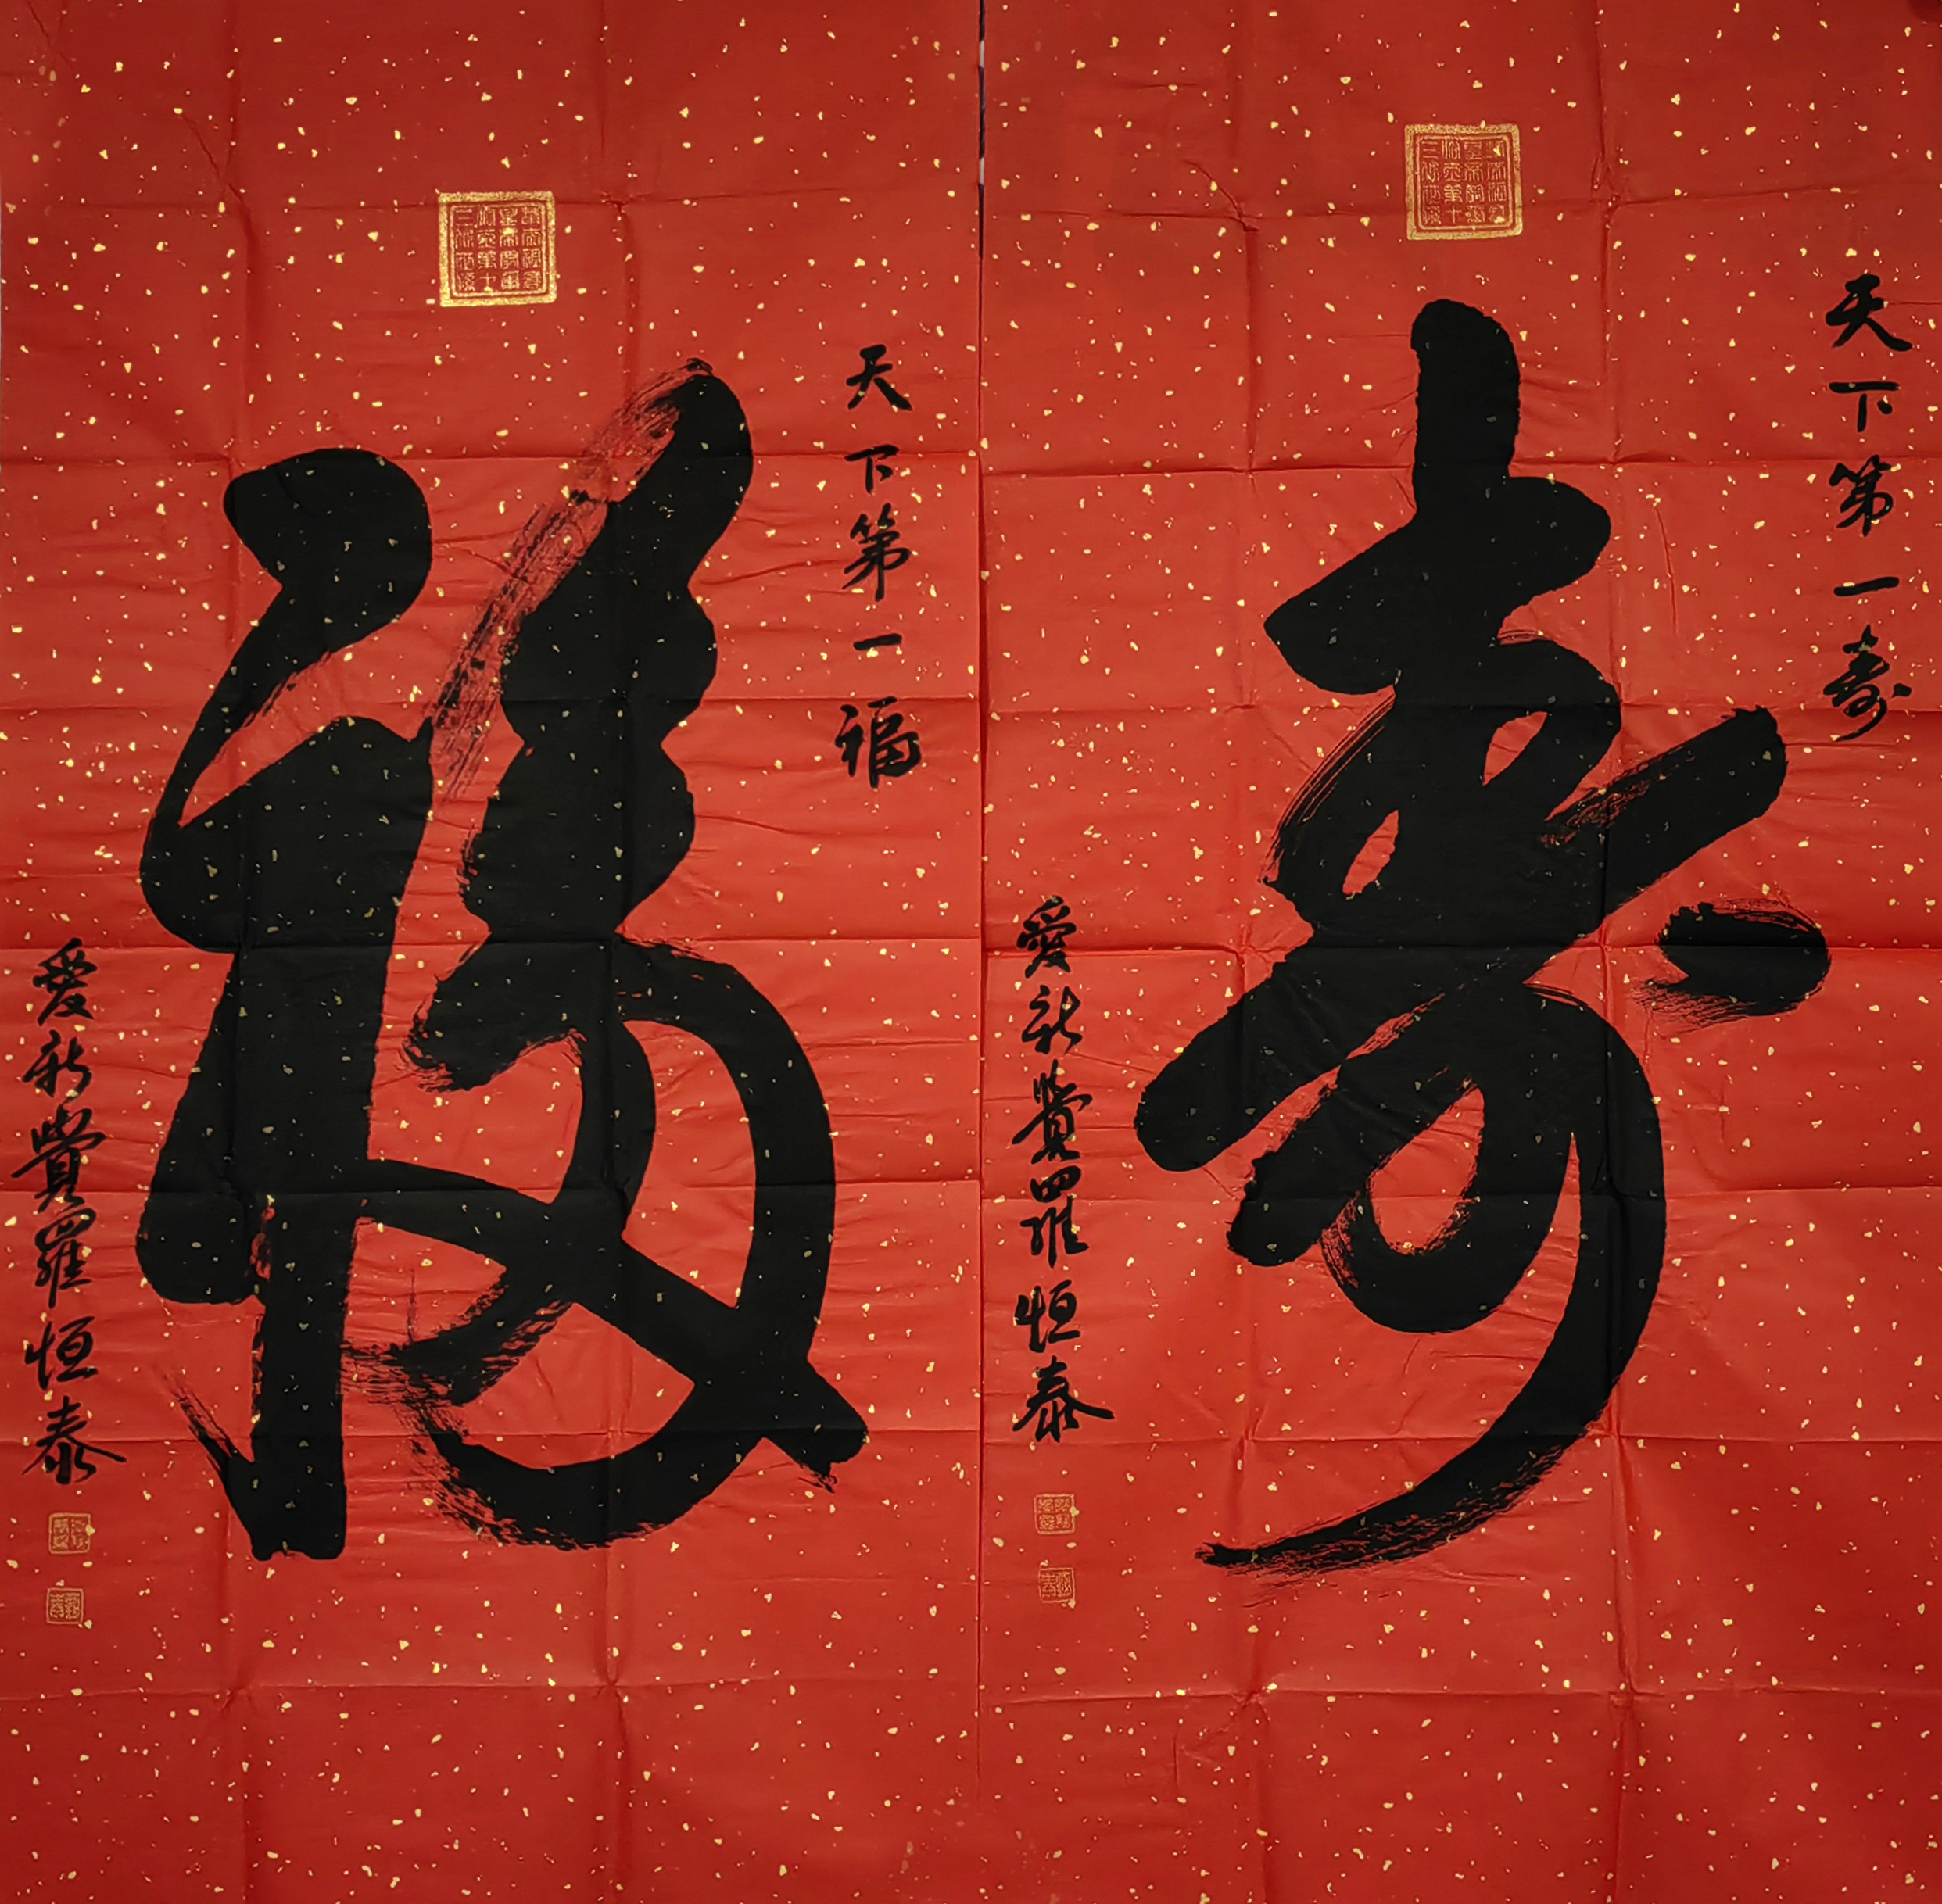 天下第一壽
壽
愛新覺羅恒泰
天下第一福
福
愛新覺羅恒泰